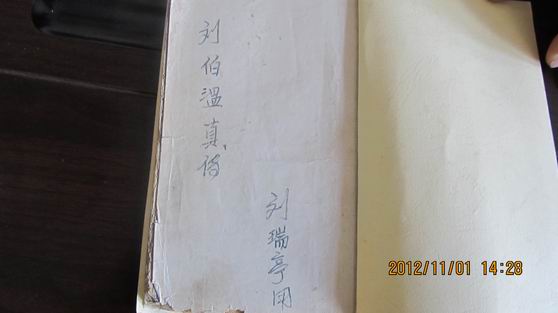 刘伯温真传
刘瑞亭用
2012/11/01 14:28